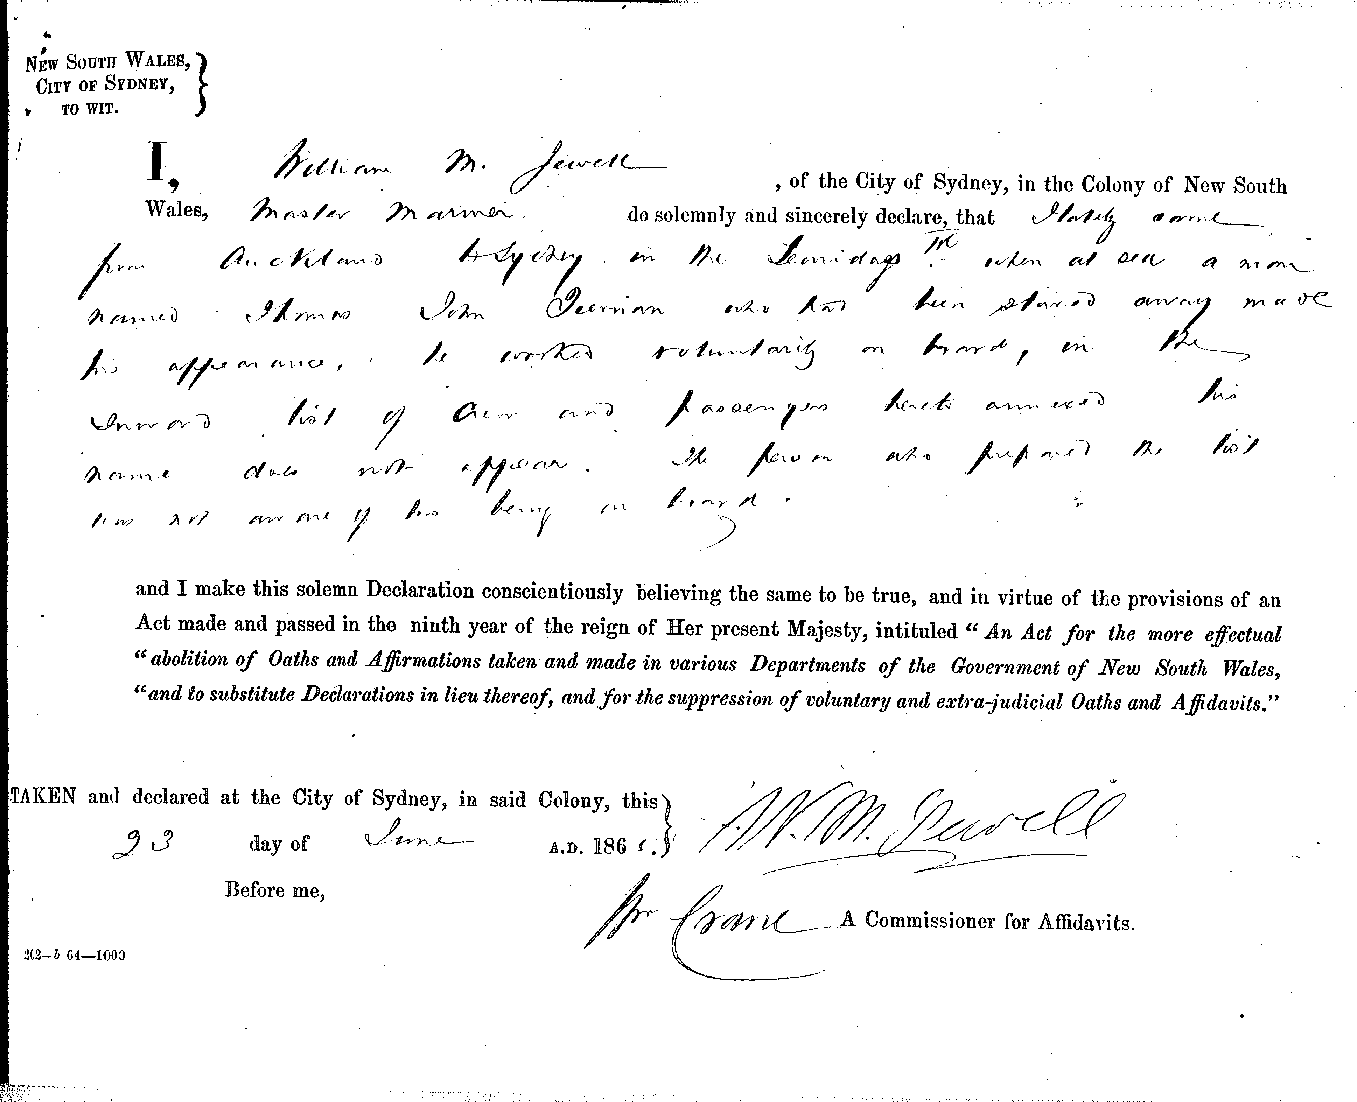 NEW SOUTH WALES,
CITY OF SYDNEY,
TO WIT.
I, William M. Jewell, of the City of Sydney, in the Colony of New South
Wales, Master Mariner do solemnly and sincerely declare, that I lately came
from Auckland to Sydney in the when at sea a man
named Thomas John who had been stowed away made
his appearance, he worked voluntarily on board, in the
Inward list of Crew and passengers hereto annexed his
name does not appear. The person who prepared the list
was not aware of his being on board.
and I make this solemn Declaration conscientiously believing the same to be true, and in virtue of the provisions of an
Act made and passed in the ninth year of the reign of Her present Majesty, intituled “An Act for the more effectual
“abolition of Oaths and Affirmations taken and made in various Departments of the Government of New South Wales,
“and to substitute Declarations in lieu thereof, and for the suppression of voluntary and extra-judicial Oaths and Affidavits.”
TAKEN and declared at the City of Sydney, in said Colony, this
23 day of June A.D. 186 W. M. Jewell
Before me,
Crane A Commissioner for Affidavits.
202—b 64—1000